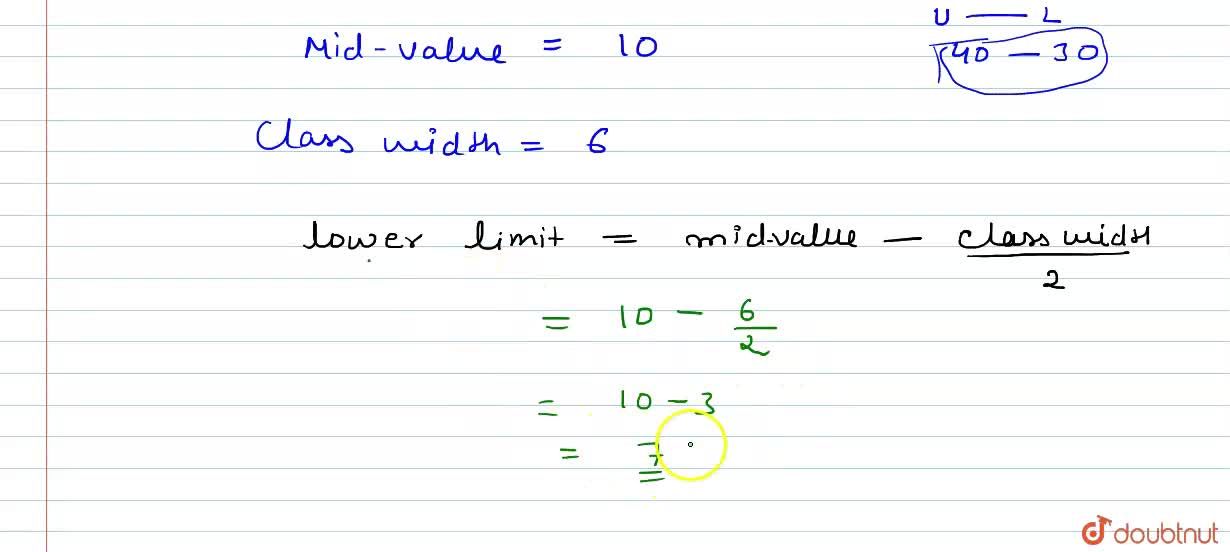 U — L
Mid-value = 10
40 - 30
Class width = 6
lower limit = mid-value - class width / 2
= 10 - 6/2
= 10 - 3
= 7
doubtnut